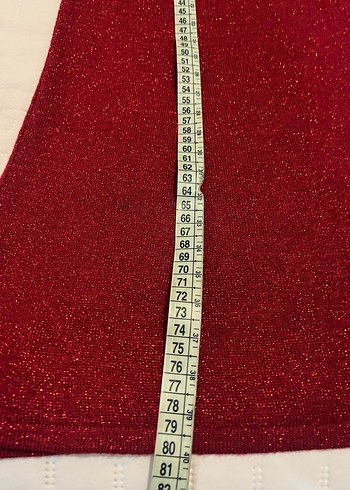 44
45
46
47
48
49
50
51
52
53
54
55
56
57
58
59
60
61
62
63
64
65
66
67
68
69
70
71
72
73
74
75
76
77
78
79
80
81
82